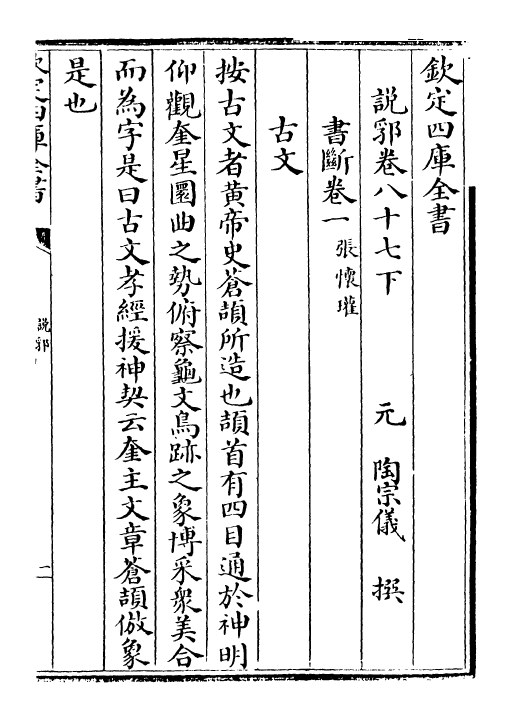 欽定四庫全書
說郛卷八十七下
元 陶宗儀 撰
書斷卷一 張懷瓘
古文
按古文者黃帝史蒼頡所造也頡首有四目通於神明
仰觀奎星圜曲之勢俯察龜文鳥跡之象博采衆美合
而為字是曰古文孝經援神契云奎主文章蒼頡倣象
是也
欽定四庫全書
說郛